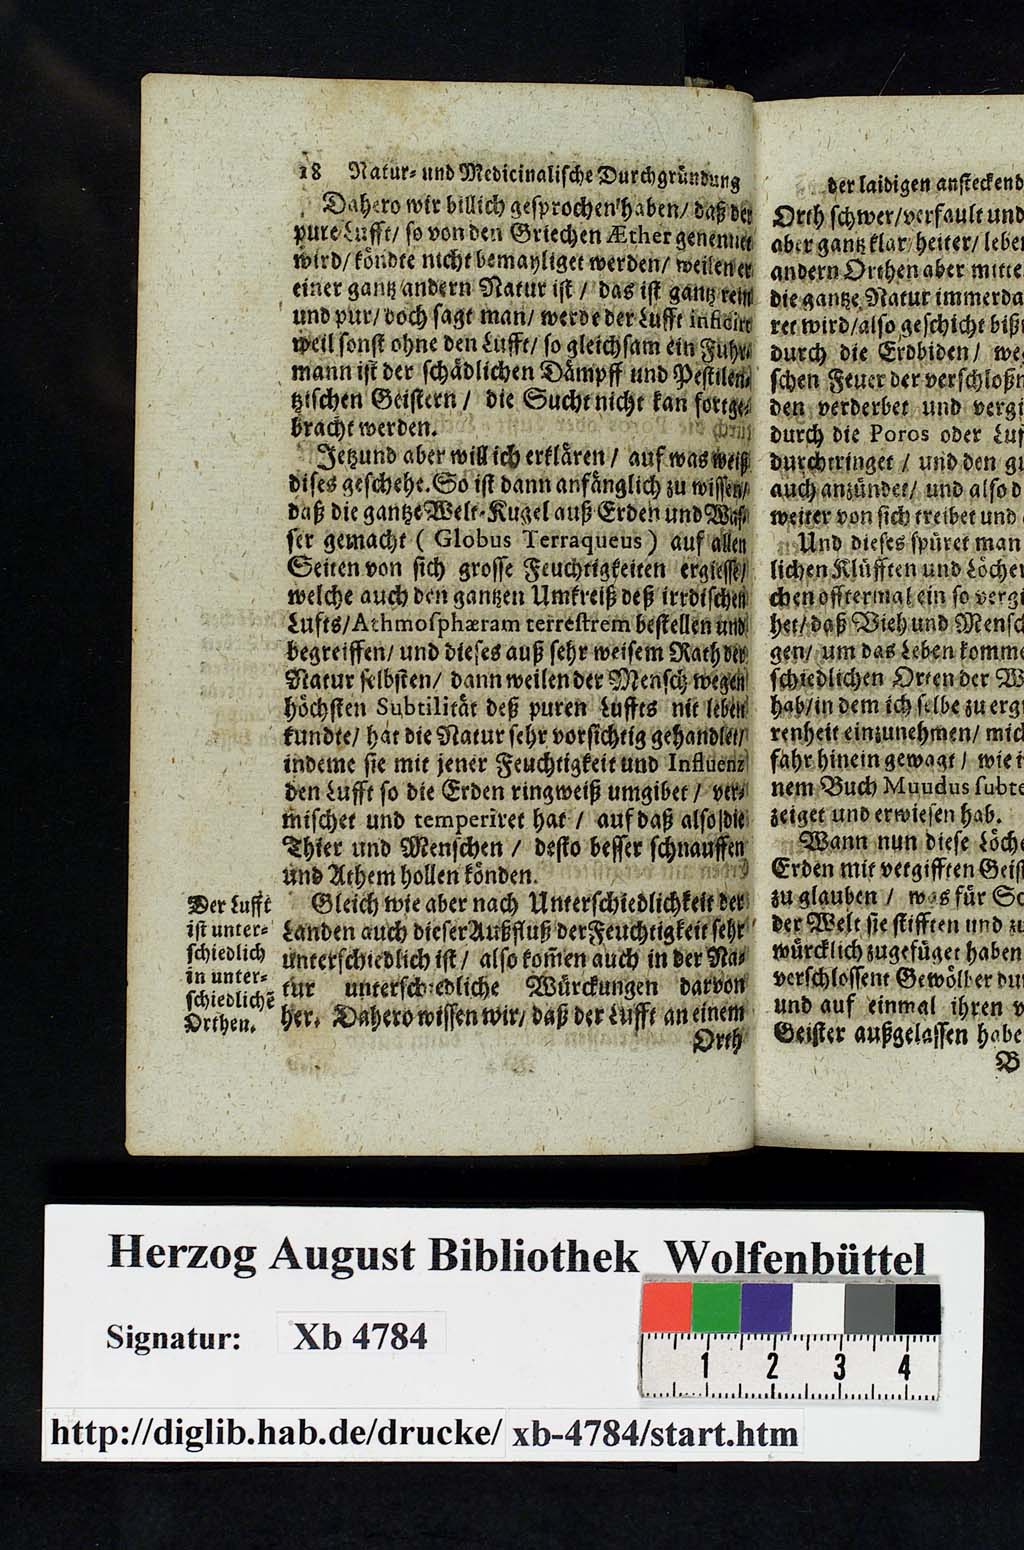 18 Natur- und Medicinalische Durchgründung
Dahero wir billich gesprochen haben/ daß der
pure Lufft/ so von den Griechen Æther genennet
wird/ köndte nicht bemayliget werden/ weilen er
einer gantz andern Natur ist / das ist gantz rein
und pur/ doch sagt man/ werde der Lufft inficirt
weil sonst ohne den Lufft/ so gleichsam ein Fuhr-
mann ist der schädlichen Dämpff und Pestilen-
tzischen Geistern / die Sucht nicht kan fortge-
bracht werden.
Jetzund aber will ich erklären / auf was weiß
dises geschehe. So ist dann anfänglich zu wissen/
daß die gantze Welt-Kugel auß Erden und Was-
ser gemacht ( Globus Terraqueus ) auf allen
Seiten von sich grosse Feuchtigkeiten ergiesse/
welche auch den gantzen Umkreiß deß irrdischen
Lufts/ Athmosphæram terrestrem bestellen und
begreiffen/ und dieses auß sehr weisem Rath der
Natur selbsten/ dann weilen der Mensch wegen
höchsten Subtilität deß puren Lufftes nit leben
kundte/ hat die Natur sehr vorsichtig gehandlet/
indeme sie mit jener Feuchtigkeit und Influenz
den Lufft so die Erden ringweiß umgibet / ver-
mischet und temperiret hat / auf daß also die
Thier und Menschen / desto besser schnauffen
und Athem hollen könden.
Gleich wie aber nach Unterschiedlichkeit der
Landen auch dieser Außfluß der Feuchtigkeit sehr
unterschiedlich ist / also kom̃en auch in der Na-
tur unterschiedliche Würckungen darvon
her. Dahero wissen wir/ daß der Lufft an einem
Orth
Der Lufft
ist unter-
schiedlich
in unter-
schiedlichē
Orthen.
der laidigen ansteckend
Orth schwer/ verfault und
aber gantz klar/ heiter/ leben
andern Orthen aber mitte
die gantze Natur immerda
ret wird/ also geschicht biß
durch die Erdbiden / we
schen Feuer der verschloßn
den verderbet und vergi
durch die Poros oder Luf
durchtringet / und den gu
auch anzündet/ und also d
weiter von sich treibet und
Und dieses spüret man
lichen Klüfften und Löcher
chen offtermal ein so vergi
het/ daß Vieh und Mensc
gen/ um das Leben komme
schiedlichen Orten der W
hab/ in dem ich selbe zu erg
renheit einzunehmen/ mic
fahr hinein gewagt / wie i
nem Buch Muudus subte
zeiget und erwiesen hab.
Wann nun diese Löche
Erden mit vergifften Geis
zu glauben / was für Sc
der Welt sie stifften und zu
würcklich zugefüget haben
verschlossene Gewölber du
und auf einmal ihren v
Geister außgelassen habe
B
Herzog August Bibliothek Wolfenbüttel
Signatur: Xb 4784
1 2 3 4
http://diglib.hab.de/drucke/ xb-4784/start.htm